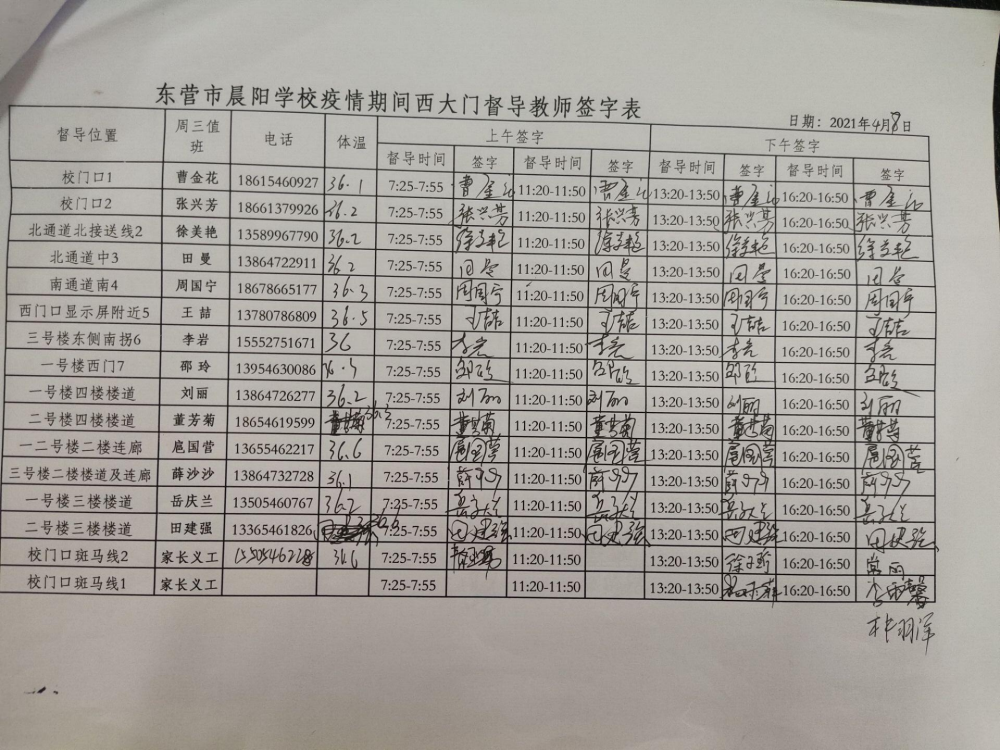 东营市晨阳学校疫情期间西大门督导教师签字表
日期：2021年4月8日
督导位置 周三值班 电话 体温 上午签字 下午签字
督导时间 签字 督导时间 签字 督导时间 签字 督导时间 签字
校门口1 曹金花 18615460927 36.1 7:25-7:55 曹金花 11:20-11:50 曹金花 13:20-13:50 曹金花 16:20-16:50 曹金花
校门口2 张兴芳 18661379926 36.2 7:25-7:55 张兴芳 11:20-11:50 张兴芳 13:20-13:50 张兴芳 16:20-16:50 张兴芳
北通道北接送线2 徐美艳 13589967790 36.2 7:25-7:55 徐美艳 11:20-11:50 徐美艳 13:20-13:50 徐美艳 16:20-16:50 徐美艳
北通道中3 田曼 13864722911 36.2 7:25-7:55 田曼 11:20-11:50 田曼 13:20-13:50 田曼 16:20-16:50 田曼
南通道南4 周国宁 18678665177 36.3 7:25-7:55 周国宁 11:20-11:50 周国宁 13:20-13:50 周国宁 16:20-16:50 周国宁
西门口显示屏附近5 王喆 13780786809 36.5 7:25-7:55 王喆 11:20-11:50 王喆 13:20-13:50 王喆 16:20-16:50 王喆
三号楼东侧南拐6 李岩 15552751671 36 7:25-7:55 李岩 11:20-11:50 李岩 13:20-13:50 李岩 16:20-16:50 李岩
一号楼西门7 邵玲 13954630086 7:25-7:55 邵玲 11:20-11:50 邵玲 13:20-13:50 邵玲 16:20-16:50 邵玲
一号楼四楼楼道 刘丽 13864726277 36.2 7:25-7:55 刘丽 11:20-11:50 刘丽 13:20-13:50 刘丽 16:20-16:50 刘丽
二号楼四楼楼道 董芳菊 18654619599 36.3 7:25-7:55 董芳菊 11:20-11:50 董芳菊 13:20-13:50 董芳菊 16:20-16:50 董芳菊
一二号楼二楼连廊 扈国营 13655462217 36.6 7:25-7:55 扈国营 11:20-11:50 扈国营 13:20-13:50 扈国营 16:20-16:50 扈国营
三号楼二楼楼道及连廊 薛沙沙 13864732728 36.1 7:25-7:55 薛沙沙 11:20-11:50 薛沙沙 13:20-13:50 薛沙沙 16:20-16:50 薛沙沙
一号楼三楼楼道 岳庆兰 13505460767 36.2 7:25-7:55 岳庆兰 11:20-11:50 岳庆兰 13:20-13:50 岳庆兰 16:20-16:50 岳庆兰
二号楼三楼楼道 田建强 13365461826 7:25-7:55 田建强 11:20-11:50 田建强 13:20-13:50 田建强 16:20-16:50 田建强
校门口斑马线2 家长义工 7:25-7:55 11:20-11:50 13:20-13:50 16:20-16:50
校门口斑马线1 家长义工 7:25-7:55 11:20-11:50 13:20-13:50 16:20-16:50